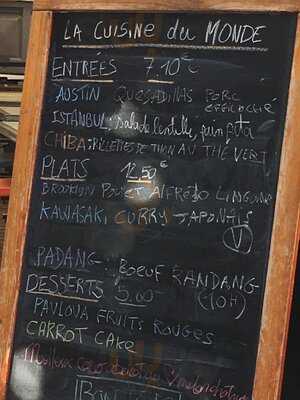 LA CUISINE du MONDE
ENTRÉES 7.10€
AUSTIN QUESADILLAS PORC
EFFILOCHÉ
ISTANBUL: Salade lentille,
CHIBA: RILLETTES DE THON AU THÉ VERT
PLATS 12.50€
BROOKLYN POULET ALFREDO LINGUINE
KAWASAKI CURRY JAPONAIS
V
PADANG: BOEUF RANDANG
DESSERTS 5.00 (-10H)
PAVLOVA FRUITS ROUGES
CARROT CAKE